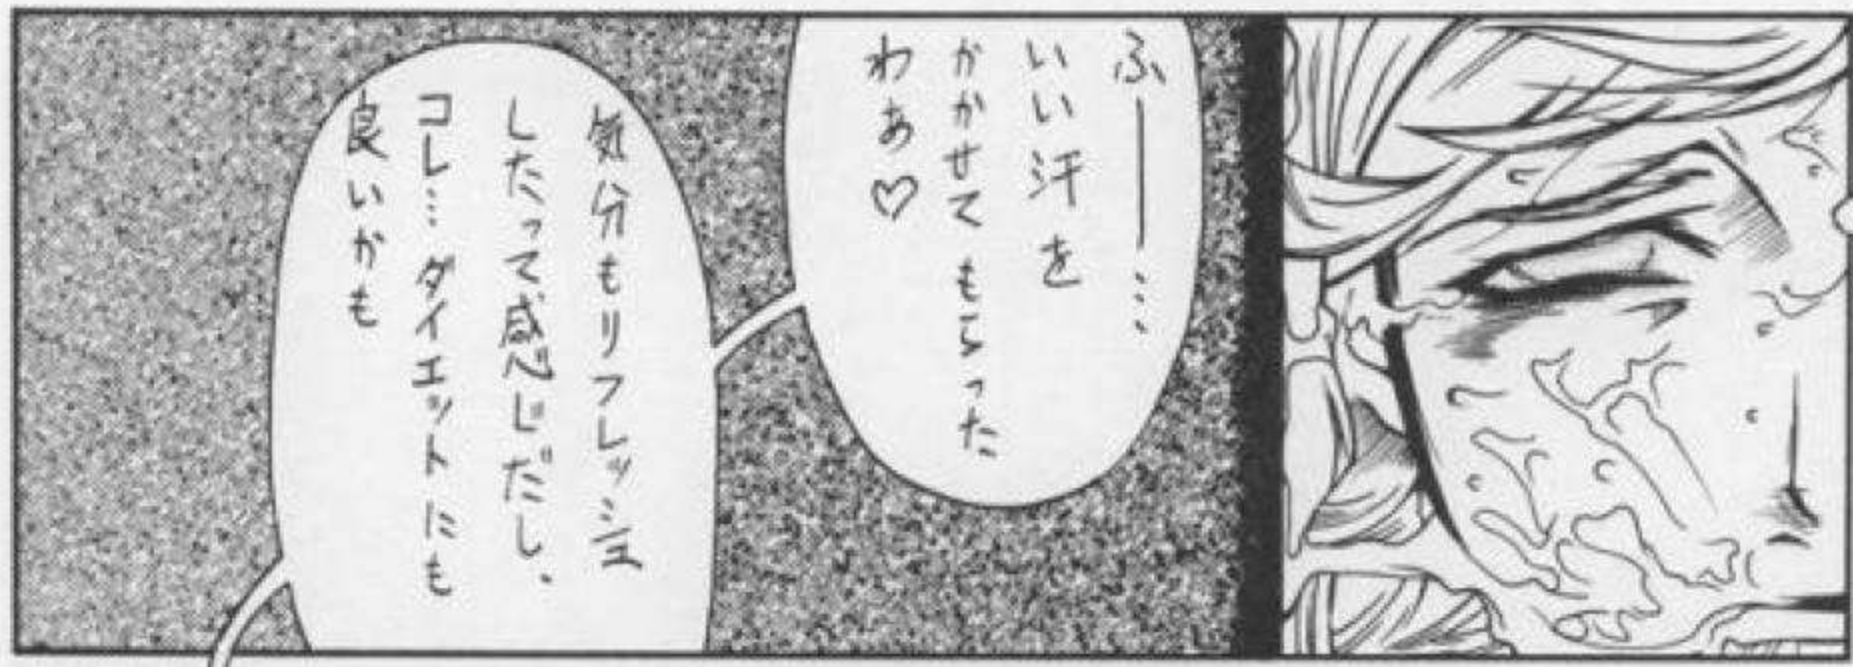 ふ――…
いい汗を
かかせてもらった
わぁ♡
気分もリフレッシュ
したって感じだし、
コレ…ダイエットにも
良いかも